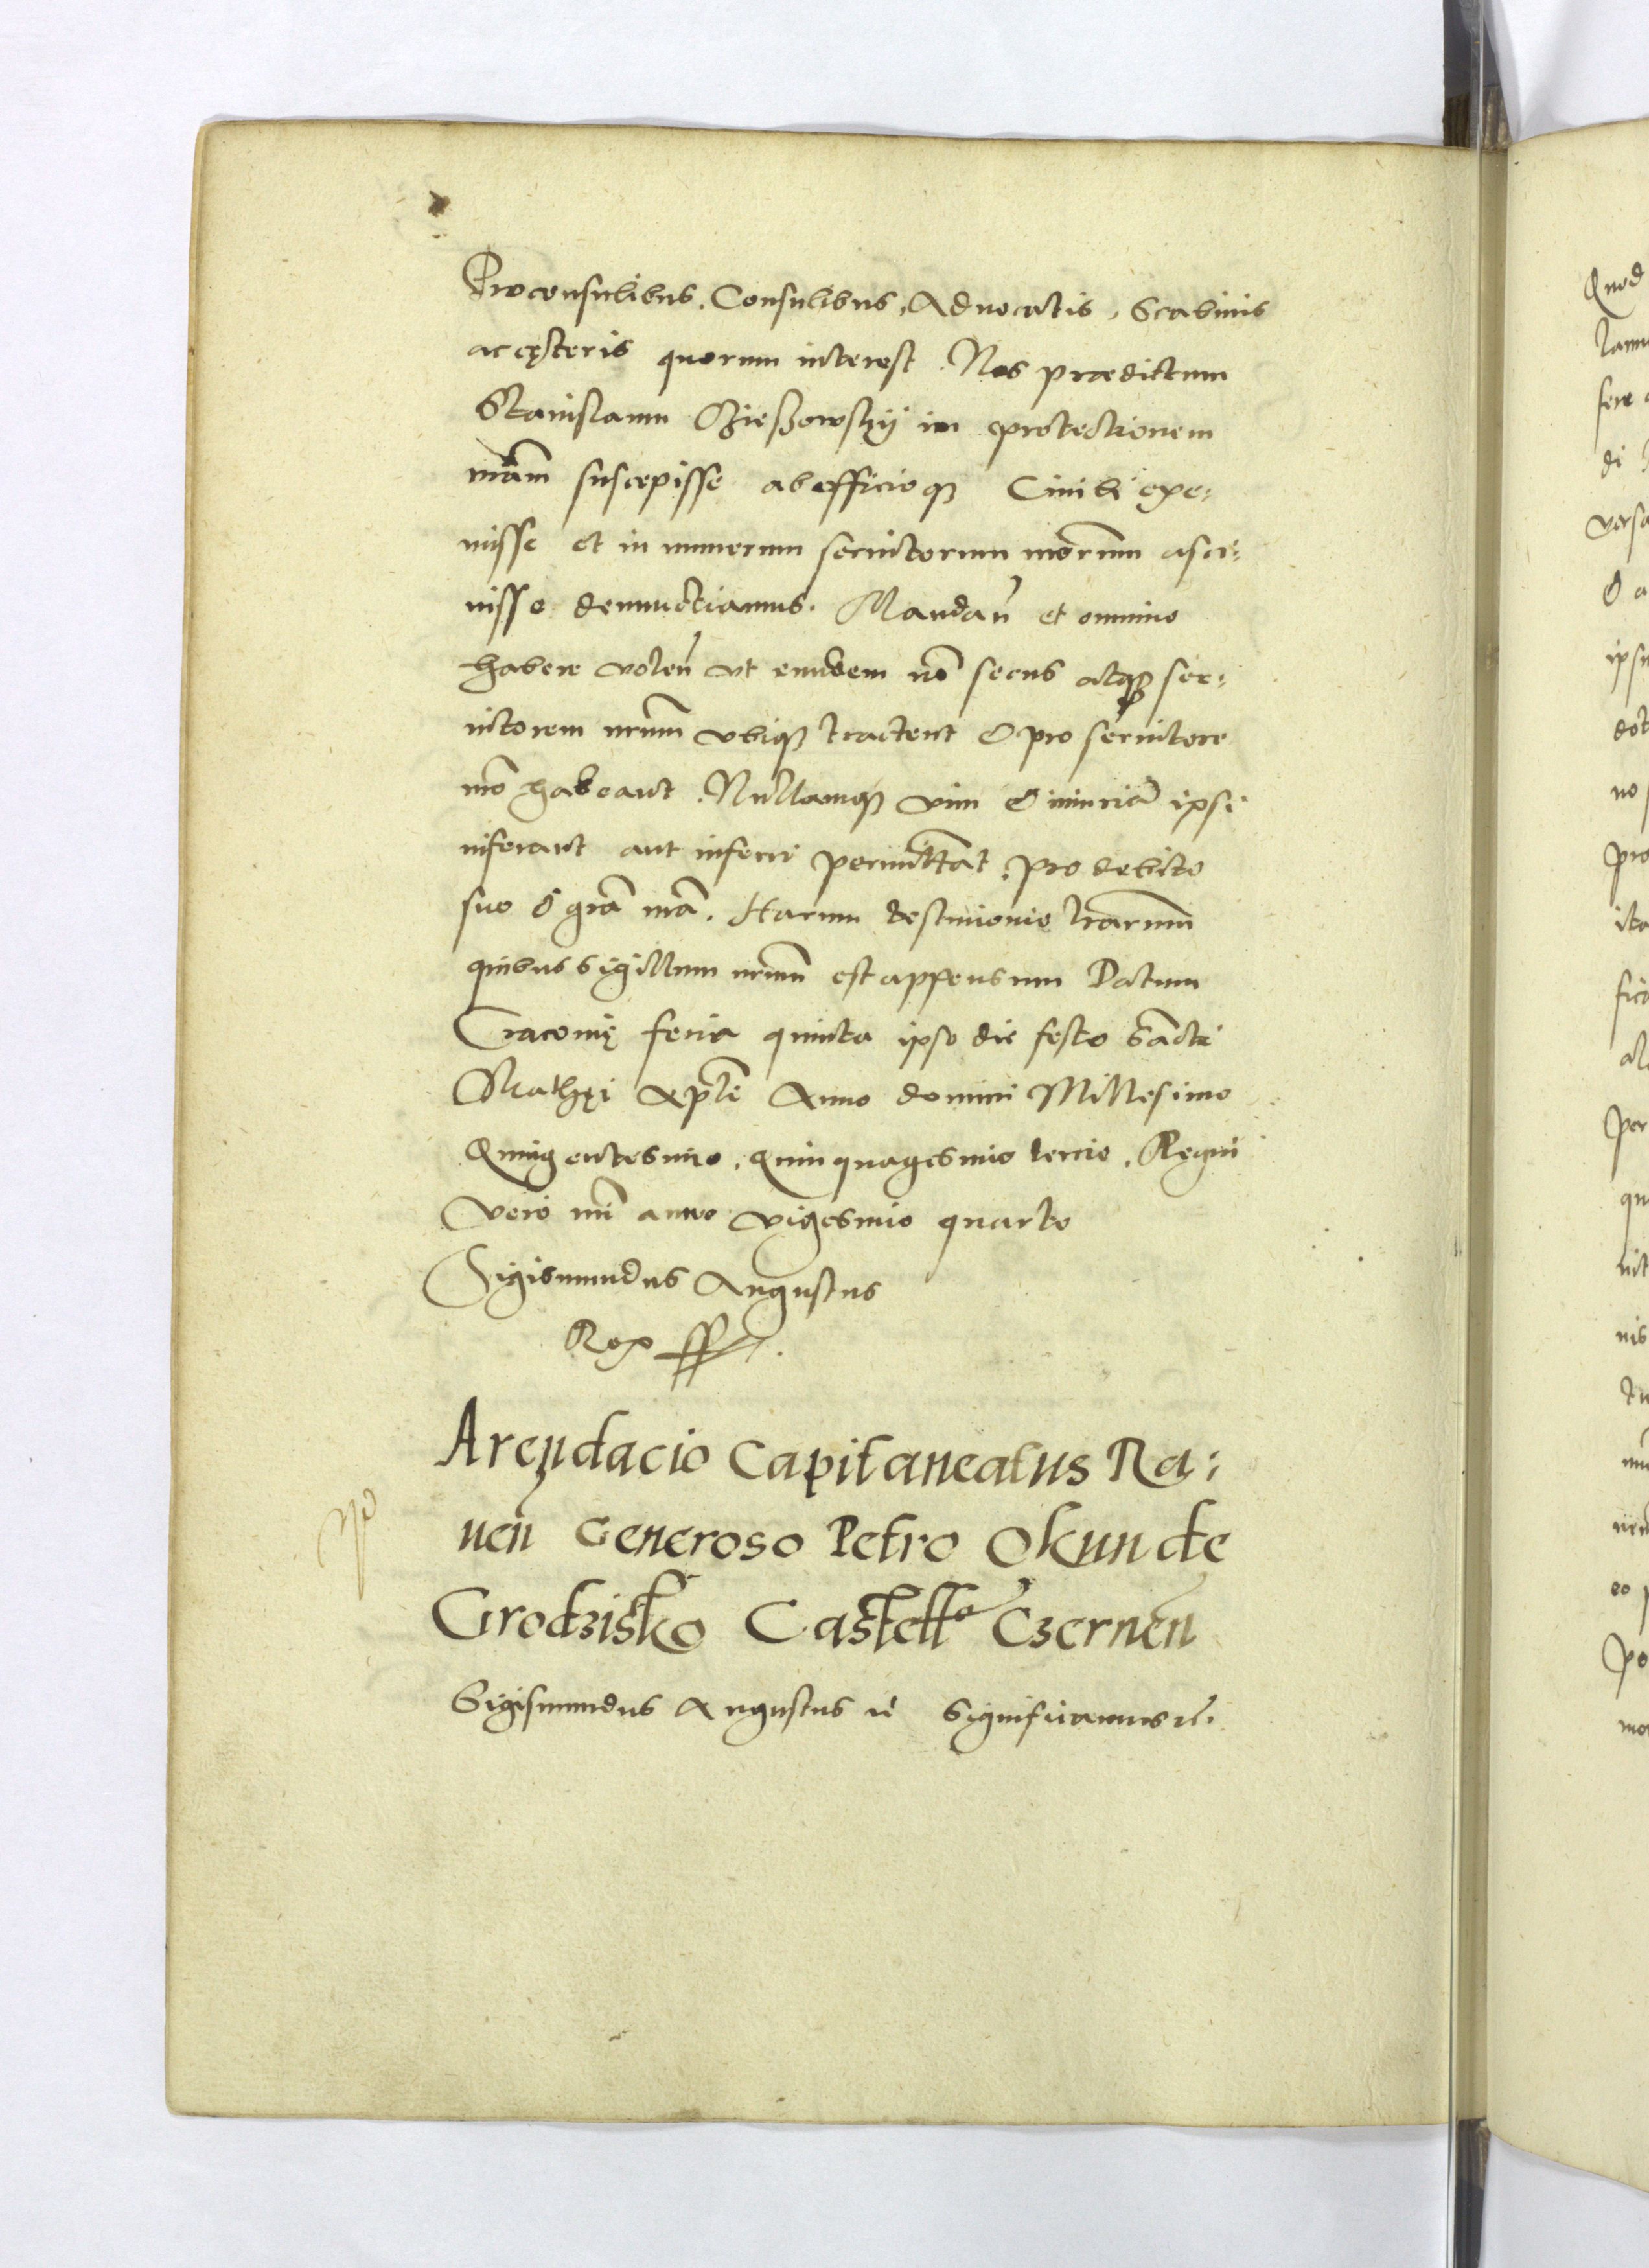 Proconsulibus, Consulibus, Advocatis, Scabinis
ac cęteris quorum interest. Nos prædictum
Stanislaum in protectionem
nr̄am suscepisse ab officioq₃ Civili exe:
misse et in numerum servitorum nr̄orum asci:
visse denunctiamus. Mandan̄ et omnino
habere volen̄ vt eundem nō secus atq₃ ser:
vitorem nr̄um vbiq₃ tractent & pro servitore
nr̄o habeant. Nullamq₃ vim & iniuriā ipsi
inferant aut inferri permittāt, pro debito
suo & gr̄a nr̄a. Harum testimonio lr̄arum
quibus Sigillum nr̄um est appensum Datum
Cracovię feria quinta ipso die festo Sācti
Mathęi Ap̄li Anno domini Millesimo
Quingentesimo, quinquagesimo tercio, Regni
vero nr̄i anno vigesimo quarto
Sigismundus Augustus
Rex
Arendacio Capitaneatus Ra:
ven̄ Generoso Petro Okun de
Grodzisko Castell° Czernen̄
Sigismundus Augustus ꝛc̄ Significamus ꝛc̄.